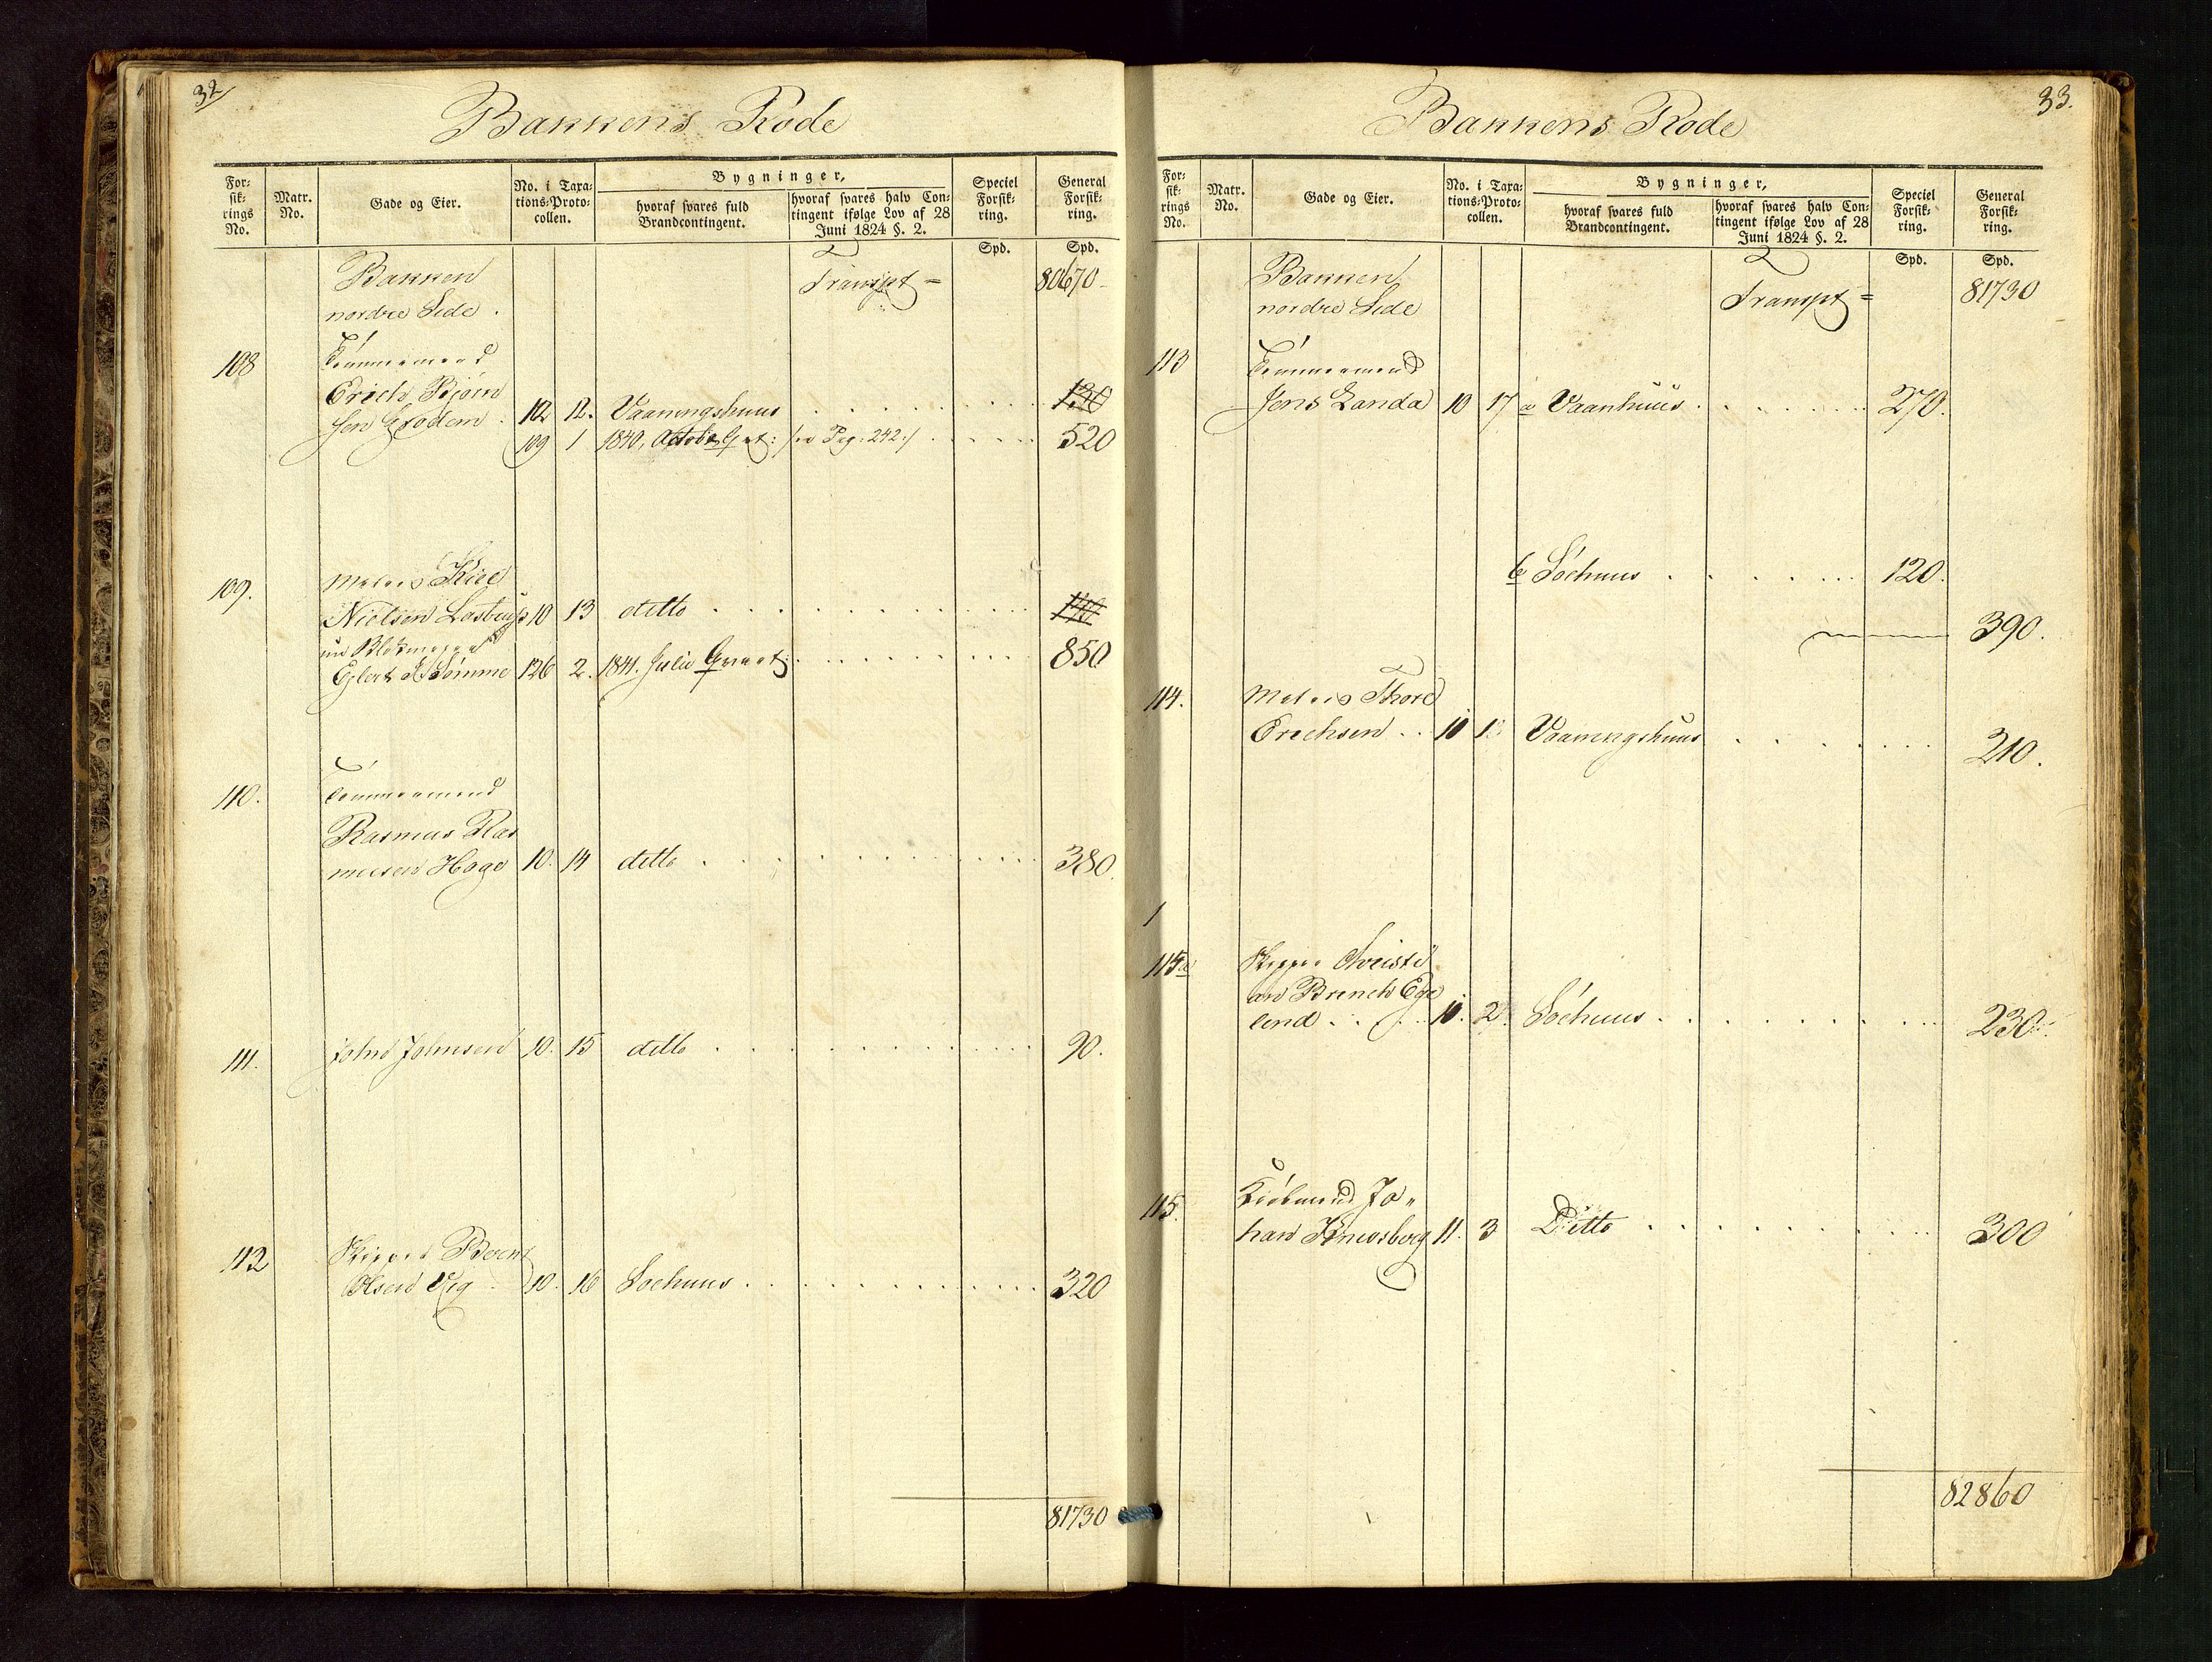 32
Bakkens Rode
For=
sik=
rings
No.
Matr.
No.
Gade og Eier.
No. i Taxa=
tions=Proto=
collen.
Bygninger,
hvoraf svares fuld
Brandcontingent.
hvoraf svares halv Con=
tingent ifølge Lov af 28
Juni 1824 §. 2.
Speciel
Forsik=
ring.
General
Forsik=
ring.
Spd.
Spd.
Bakken Transpt = 80670
nordre Side.
108 Tømmermand
Erich Bjørn
sen Grodem. 10 12. Vaaningshuus
109 1 1840, October Qvt: /: Pag: 242 :/ 520
109. Matros Kiel
Nielsen Lastrup 10 13 ditto
nu Blokmager
Eylert Sømme 126 2. 1841. Julii Qvart: 850
110. Tømmermand
Rasmus Ras
mussen Hoge 10. 14 ditto 380.
111. John Johnsen 10. 15 ditto 90.
112 Skipper Bernt
Olsen Vig 10. 16 Søehuus 320
81730
33.
Bakkens Rode
For=
sik=
rings
No.
Matr.
No.
Gade og Eier.
No. i Taxa=
tions=Proto=
collen.
Bygninger,
hvoraf svares fuld
Brandcontingent.
hvoraf svares halv Con=
tingent ifølge Lov af 28
Juni 1824 §. 2.
Speciel
Forsik=
ring.
General
Forsik=
ring.
Spd.
Spd.
Bakken Transpt = 81730
nordre Side
113 Tømmermand
Jens Landa 10 17 a Vaanhuus 270.
b Søehuus 120.
390.
114. Matros Thore
Erichsen Vaaningshuus 210.
1
115a Skipper Christi
an Brinch Ege
lend 2. Søehuus 230
115. Kiøbmand Jo„
han 11. 3 Ditto 300
82860